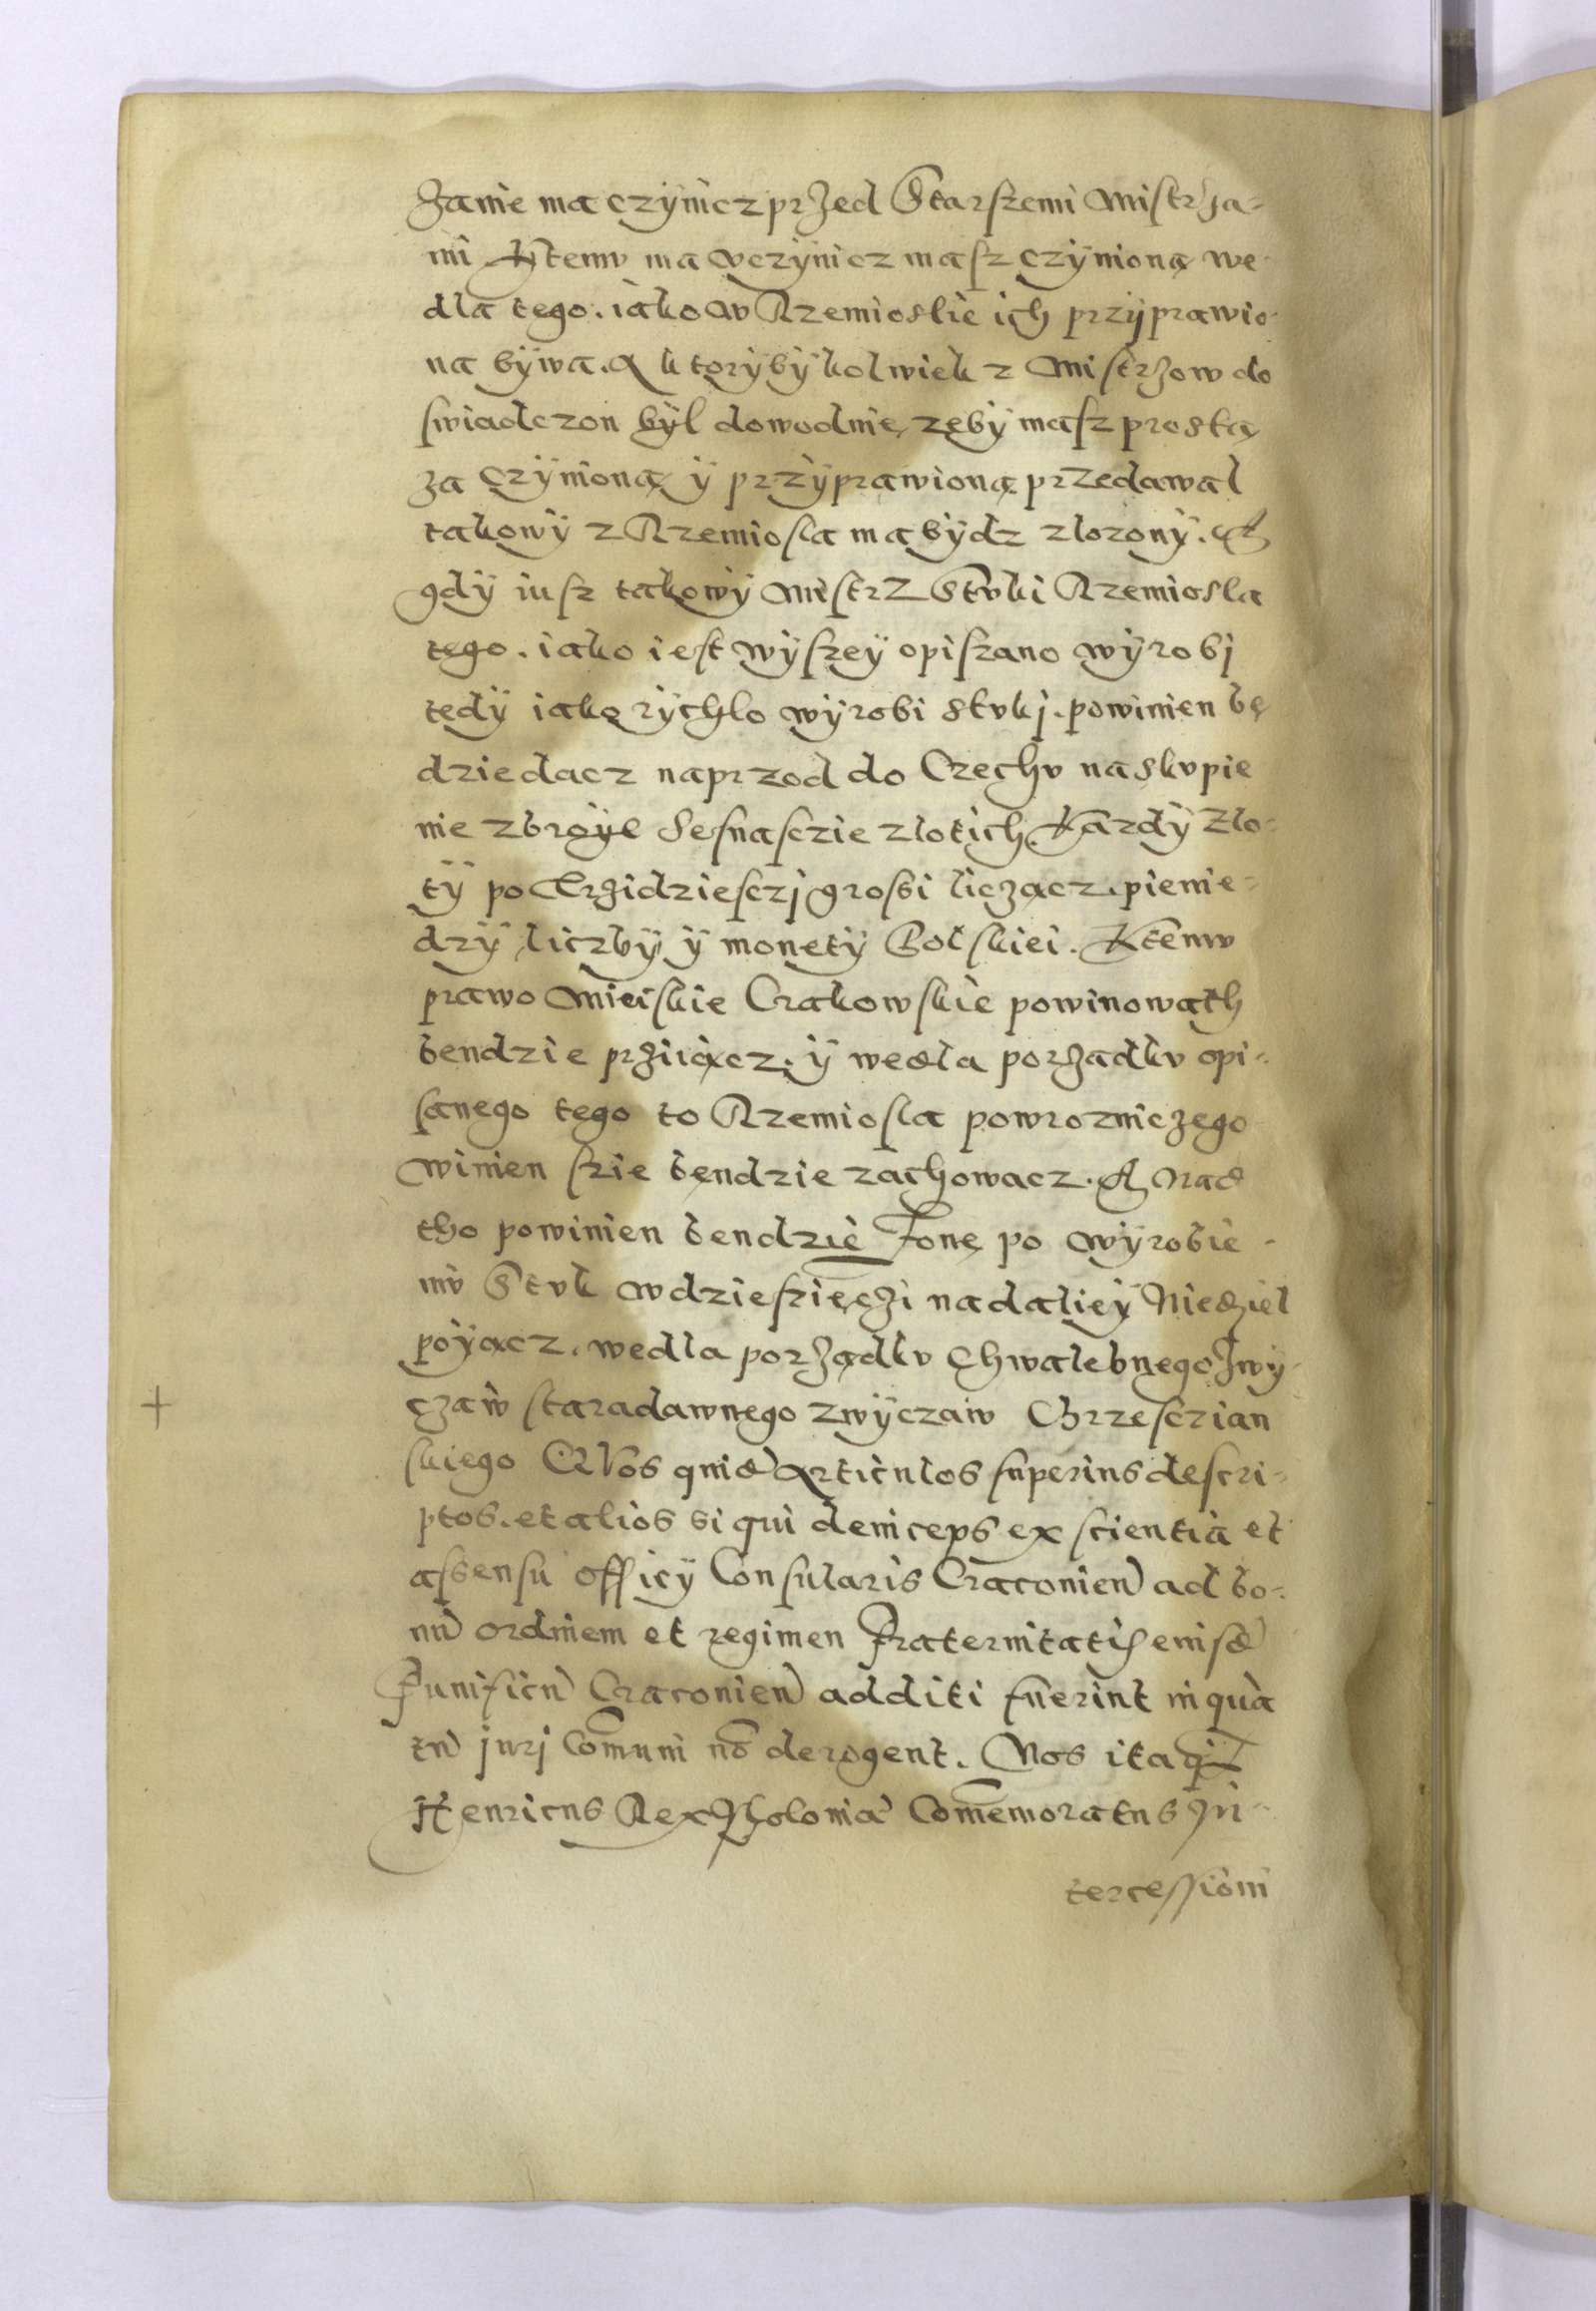 zanie ma czÿnicz przed Starszemi Mistrza-
mi Ktemv ma vczÿnicz masz czÿnioną we-
dla tego. iako w Rzemioslie ich przÿprawio-
na bÿwa. A ktorÿbÿkolwiek z Mistrzow do
swiadczon bÿl dowodnie, zebÿ masz prostą
za czÿnioną ÿ przÿprawioną przedawal
takowÿ z Rzemiosla ma bÿdz zlozonÿ. A
gdÿ iusz takowÿ Mistrz Stvki Rzemiosla
tego. iako iest wÿszeÿ opiszano wÿrobj
tedÿ iako rÿchlo wÿrobi stvkj. powinien bę
dzie dacz naprzod do Czechv na skvpie
nie zbroÿe Sesnasczie zlotich. Kazdÿ zlo-
tÿ po Trzidziesczj grossi liczącz. pienie-
dzÿ liczbÿ ÿ monetÿ Polskiei. Ktemv
prawo Mieiskie Crakowskie powinowath
bendzie prziiącz. ÿ wedla porządkv opi-
sanego tego to Rzemiosla powrozniczego
winien szie bendzie zachowacz. A nad
tho powinien bendzie Zonę po wÿrobie-
niv Stvk w dziesziączi nadalieÿ Niedziel
poÿącz. wedla porządkv chwalebnego zwÿ-
czaiv staradawnego zwÿczaiv Chrzesczian
skiego Quos quid Articulos superius descri-
ptos. et alios si qui deinceps ex scientia et
assensu officÿ Consularis Cracouien ad bo-
nu ordinem et regimen Fraternitatis eiusd
Funificu Cracouien additi fuerint in qua
tu jurj Comuni no derogent. Nos itaq
Henricus Rex Poloniæ Comemoratus In-
tercessioni